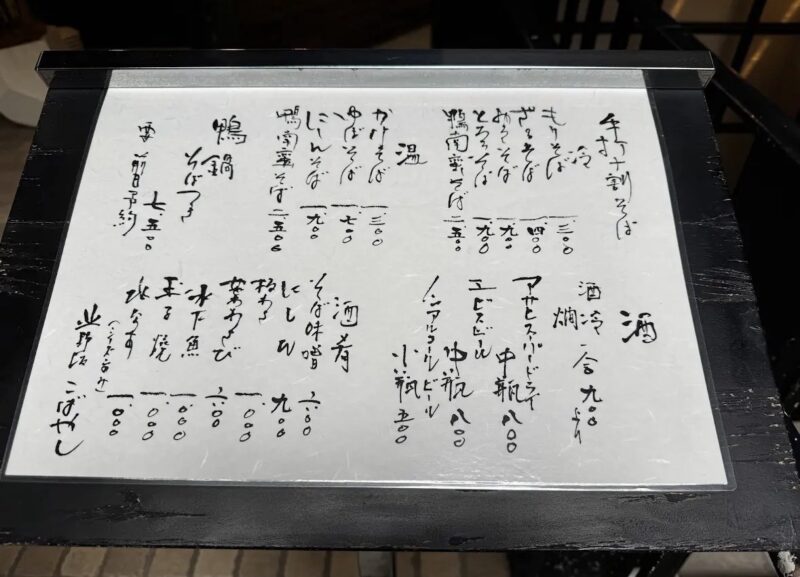 手打十割そば
冷
もりそば 一、三〇〇
ざるそば 一、四〇〇
おろしそば 一、九〇〇
とろろそば 一、九〇〇
鴨南蛮そば 二、五〇〇
温
かけそば 一、三〇〇
ゆばそば 一、七〇〇
にしんそば 一、九〇〇
鴨南蛮そば 二、五〇〇
鴨鍋
そばつき
七、五〇〇
要 前日予約
酒
酒 冷 燗 一合 九〇〇より
アサヒスーパードライ 中瓶 八〇〇
エビスビール 中瓶 八〇〇
ノンアルコールビール 小瓶 五〇〇
酒肴
そば味噌 六〇〇
にしん 九〇〇
板わさ 一、〇〇〇
葉わさび 六〇〇
氷下魚 一、〇〇〇
玉子焼 一、〇〇〇
水なす 一、〇〇〇
こばやし